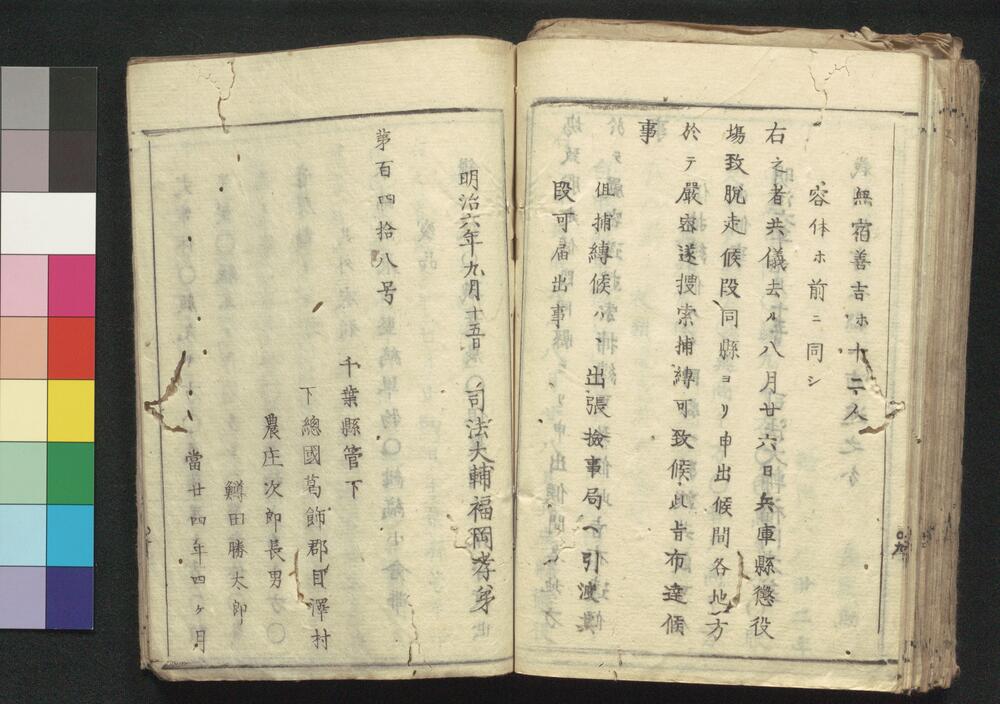 無宿善吉ホ十二人
容体ホ前ニ同シ
右之者共儀去ル八月廿六日兵庫縣懲役
塲致脱走候段同縣ヨリ申出候間各地方
於テ嚴密遂捜索捕縛可致候此旨布達候
事
但捕縛候ハヽ出張撿事局ヘ引渡其
段可届出事
明治六年九月十五日 司法大輔福岡孝弟
第百四拾八号
千葉縣管下
下總國葛飾郡目澤村
農庄次郎長男
鱒田勝太郎
當廿四年四ヶ月